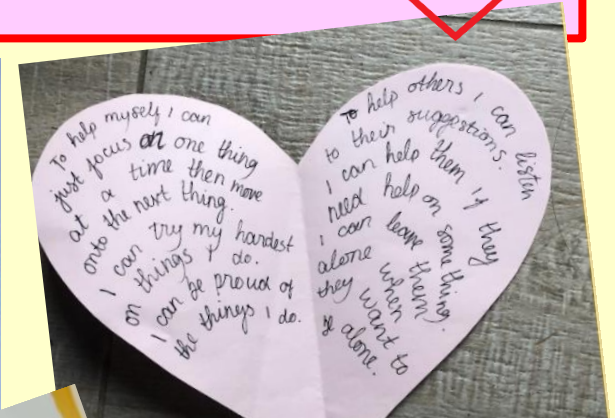 To help myself I can
just focus on one thing
at a time then move
onto the next thing.
I can try my hardest
on things I do.
I can be proud of
the things I do.
To help others I can listen
to their suggestions.
I can help them if they
need help on something.
I can leave them
alone when
they want to
be alone.